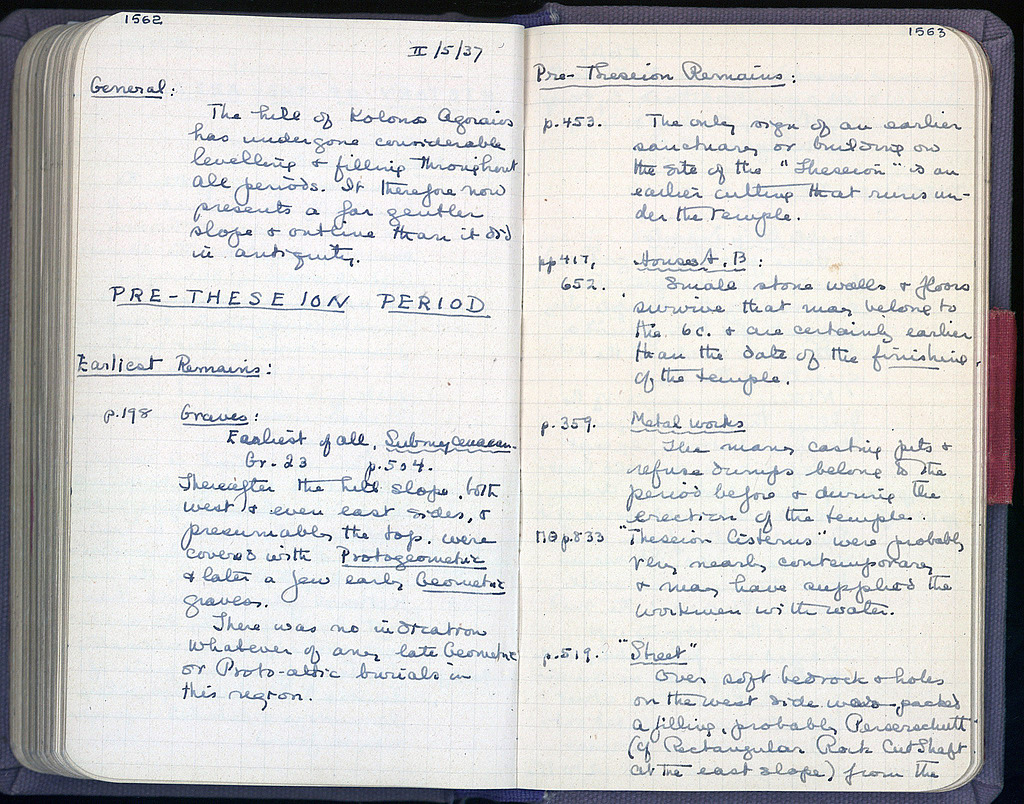 1562
II/5/37
General:
The hill of Kolonos Agoraios
has undergone considerable
levelling & filling throughout
all periods. It therefore now
presents a far gentler
slope & outline than it did
in antiquity.
PRE-THESEION PERIOD
Earliest Remains:
p.198 Graves:
Earliest of all, Submycenaean.
Gr. 23 p.504.
Thereafter the hill slope, both
west & even east sides, &
presumably the top, were
covered with Protogeometric
& later a few early Geometric
graves.
There was no indication
whatever of any late Geometric
or Proto-attic burials in
this region.
1563
Pre-Theseion Remains:
p.453. The only sign of an earlier
sanctuary or building on
the site of the "Theseion" is an
earlier cutting that runs un-
der the temple.
pp 417, Houses A, B:
652. Small stone walls & floors
survive that may belong to
the 6c. & are certainly earlier
than the date of the finishing
of the temple.
p.359. Metal works
The many casting pits &
refuse dumps belong to the
period before & during the
erection of the temple.
ΠΘ p.833 "Theseion Cisterns" were probably
very nearly contemporary
& may have supplied the
workmen with water.
p.519. "Street"
Over soft bedrock & holes
on the west side was packed
a filling, probably Perserschutt
(cf Rectangular Rock Cut Shaft
at the east slope) from the